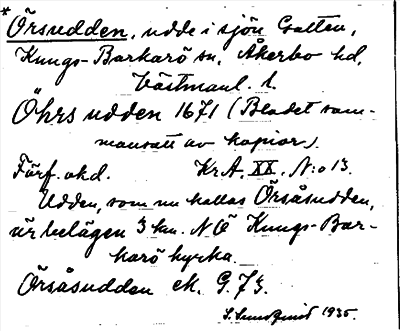 * Örsudden, udde i sjön Galten,
Kungs-Barkarö sn, Åkerbo hd,
Västmanl. l.
Öhrs udden 1671 (Bladet sam-
mansatt av kopior).
Förf. okd. Kr.A. XX. N:o 13.
Udden, som nu kallas Örsåsudden,
är belägen 3 km. NÖ Kungs-Bar-
karö kyrka.
Örsåsudden ek. G. 73.
S. Lundqvist 1935.